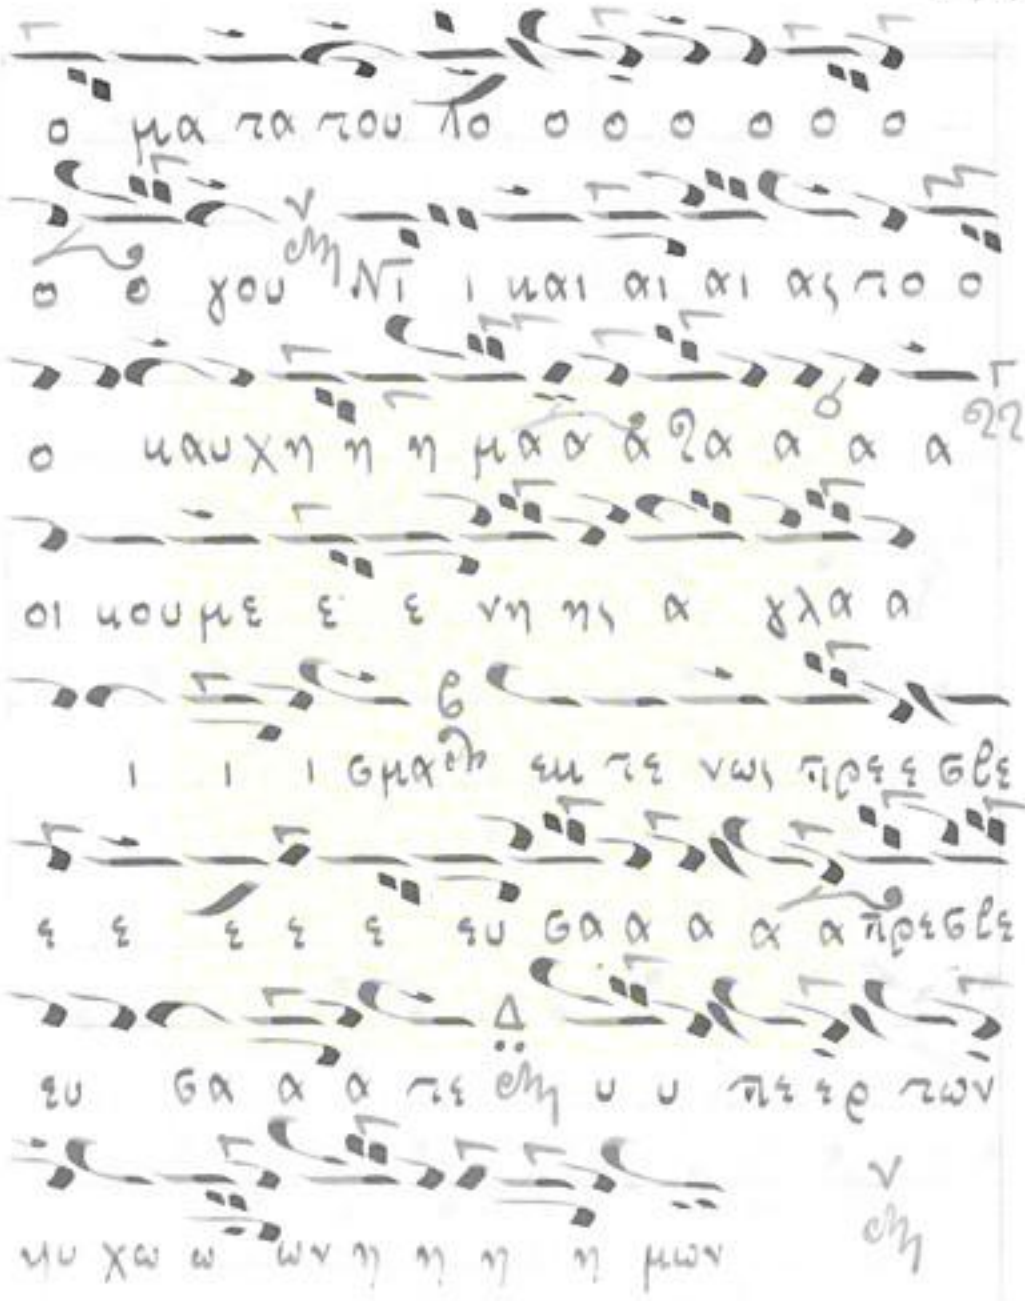 ο μα τα του λο ο ο ο ο ο ο
ο ο γου Ντ ι και αι αι ας το ο
ο καυχη η η μα α α λα α α α
οι κουμε ε ε νη ης α γλα α
ι ι ι σμα εκ τε νως πρε ε σβε
ε ε ε ε ε ευ σα α α α α πρεσβε
ευ σα α α τε υ υ πε ερ των
ψυ χω ω ων η η η η μων